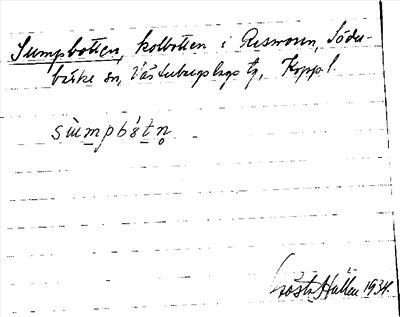 Sumpbotten, kolbotten i Resmoren, Söder-
bärke sn, Västerbergslags tg, Kopp. l.
sùmpbót̠n̥
Gösta Hallén 1934.